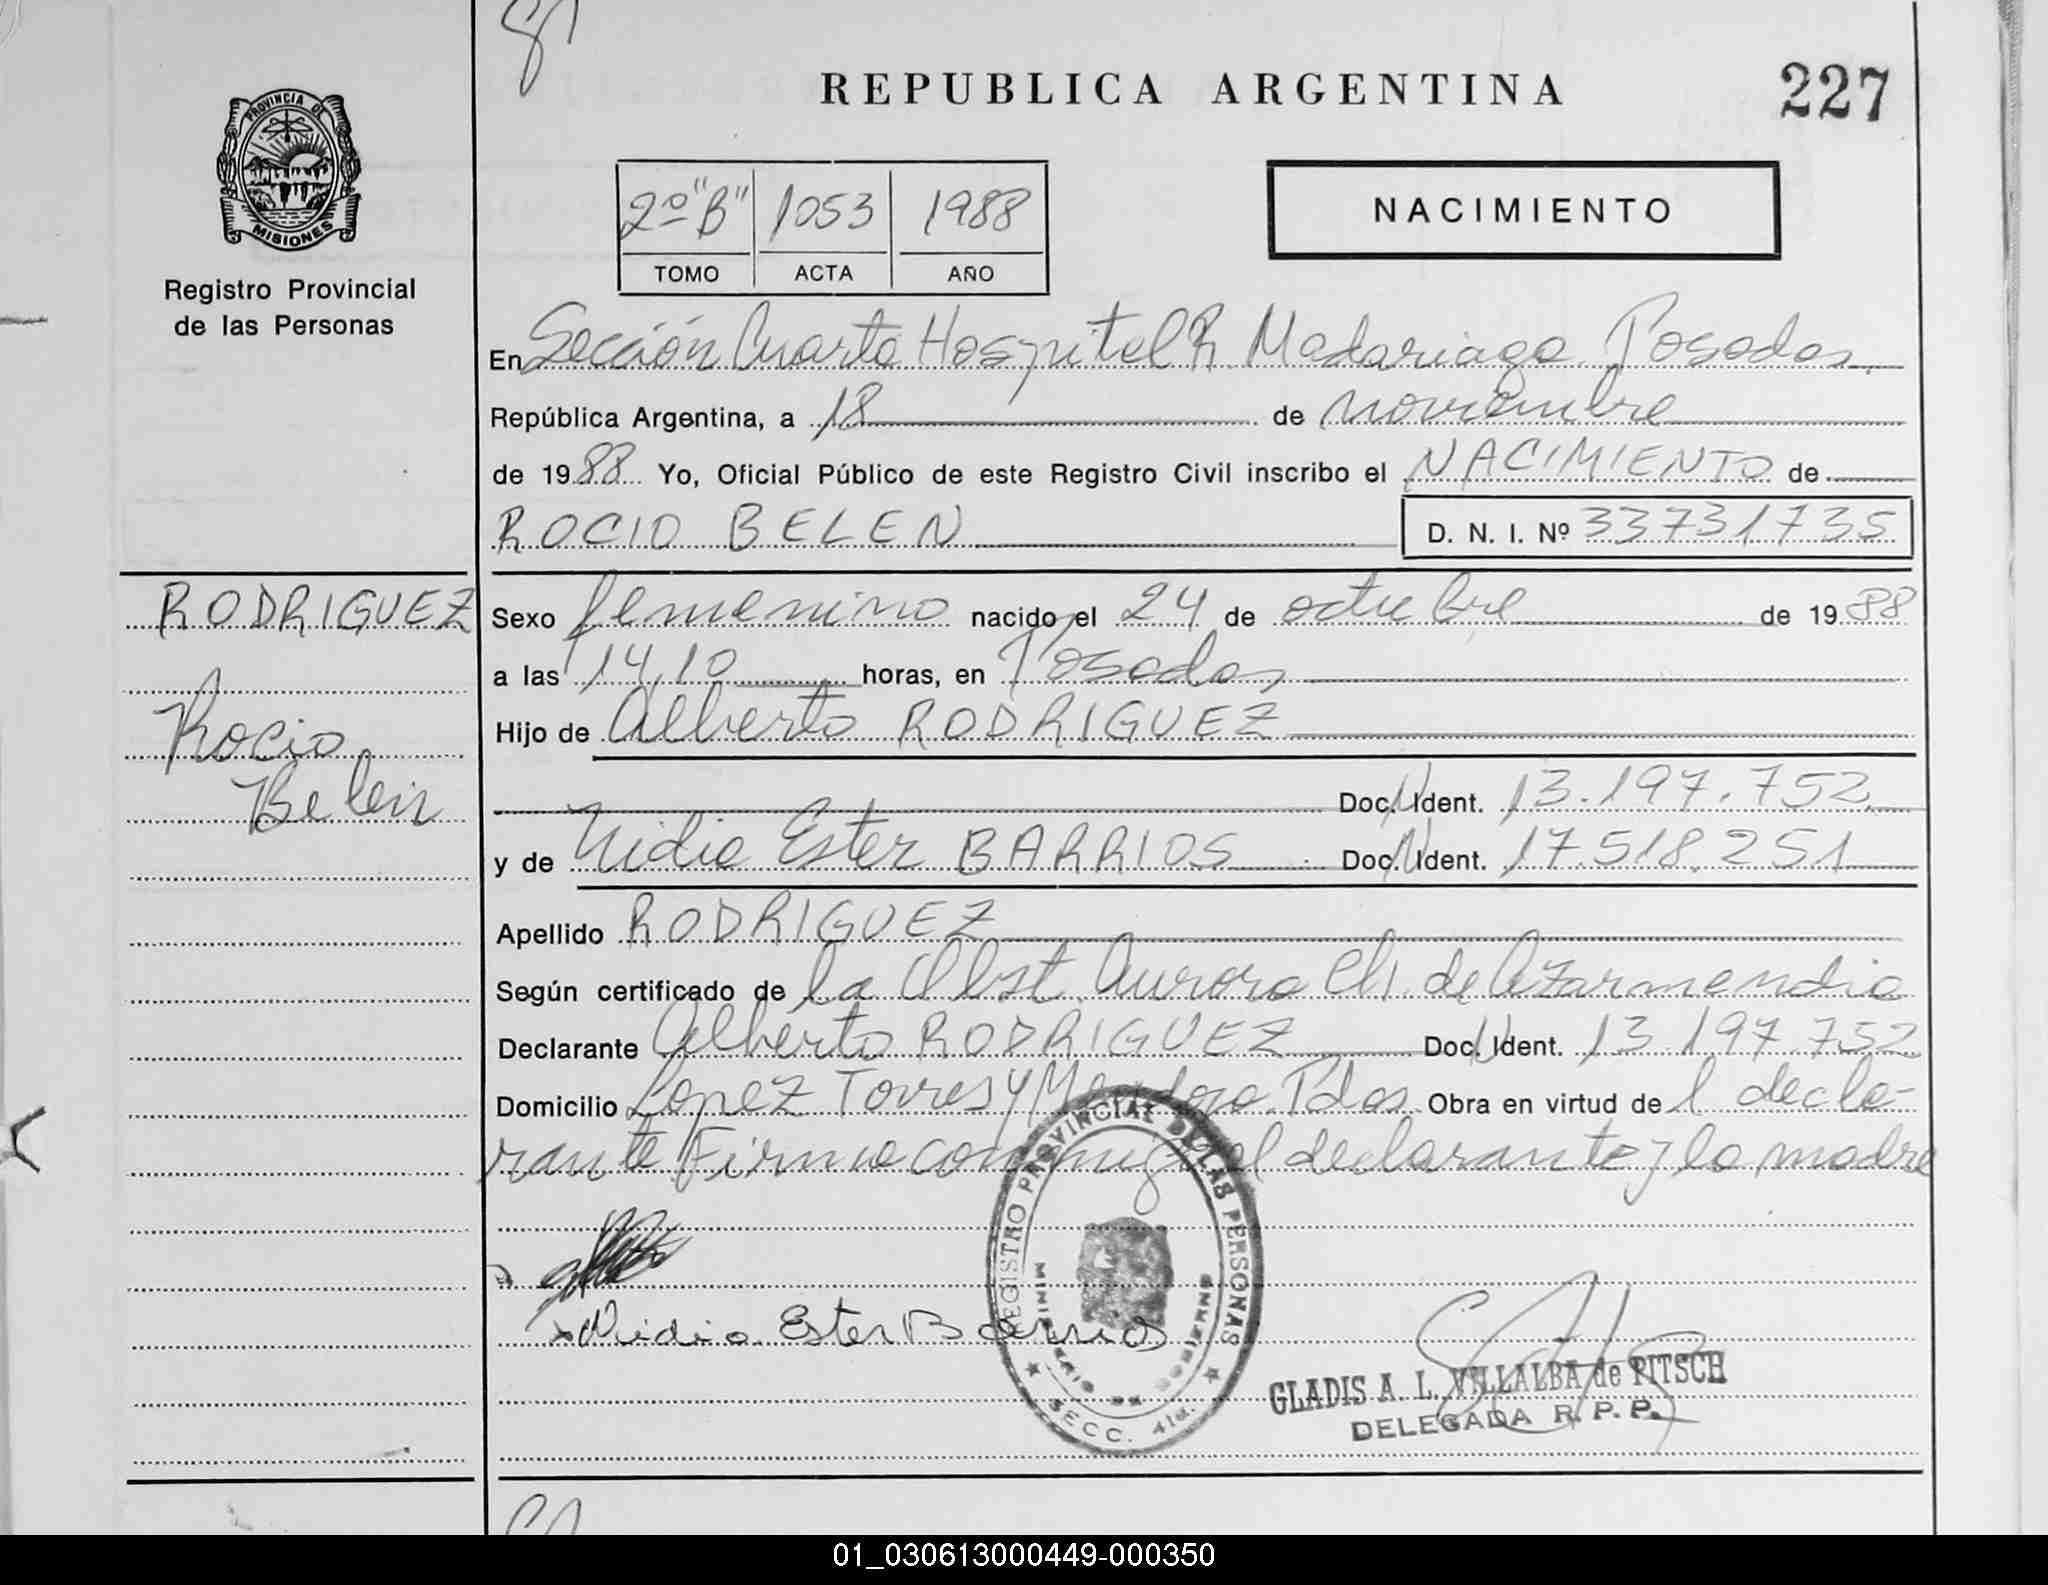 REPUBLICA ARGENTINA
227
PROVINCIA DE
MISIONES
Registro Provincial
de las Personas
2º "B" 1053 1988
TOMO ACTA AÑO
NACIMIENTO
En Sección Cuarta Hospital R. Madariaga Posadas
República Argentina, a 18 de noviembre
de 1988 Yo, Oficial Público de este Registro Civil inscribo el NACIMIENTO de
ROCIO BELEN D. N. I. Nº 33731735
RODRIGUEZ
Rocio
Belen
Sexo femenino nacido el 24 de octubre de 1988
a las 14,10 horas, en Posadas
Hijo de Alberto RODRIGUEZ
Doc. Ident. 13.197.752
y de Nidia Ester BARRIOS Doc. Ident. 17.518.251
Apellido RODRIGUEZ
Según certificado de la Obst. Aurora Ch. de Azarmendia
Declarante Alberto RODRIGUEZ Doc. Ident. 13.197.752
Domicilio Lopez Torres y Pdas. Obra en virtud de l decla-
rante Firma conmigo el declarante y la madre
Nidia Ester Barrios
REGISTRO PROVINCIAL DE LAS PERSONAS
MINISTERIO DE GOBIERNO
SECC. 4ta.
GLADIS A. L. VILLALBA de PITSCH
DELEGADA R. P. P.
01_030613000449-000350